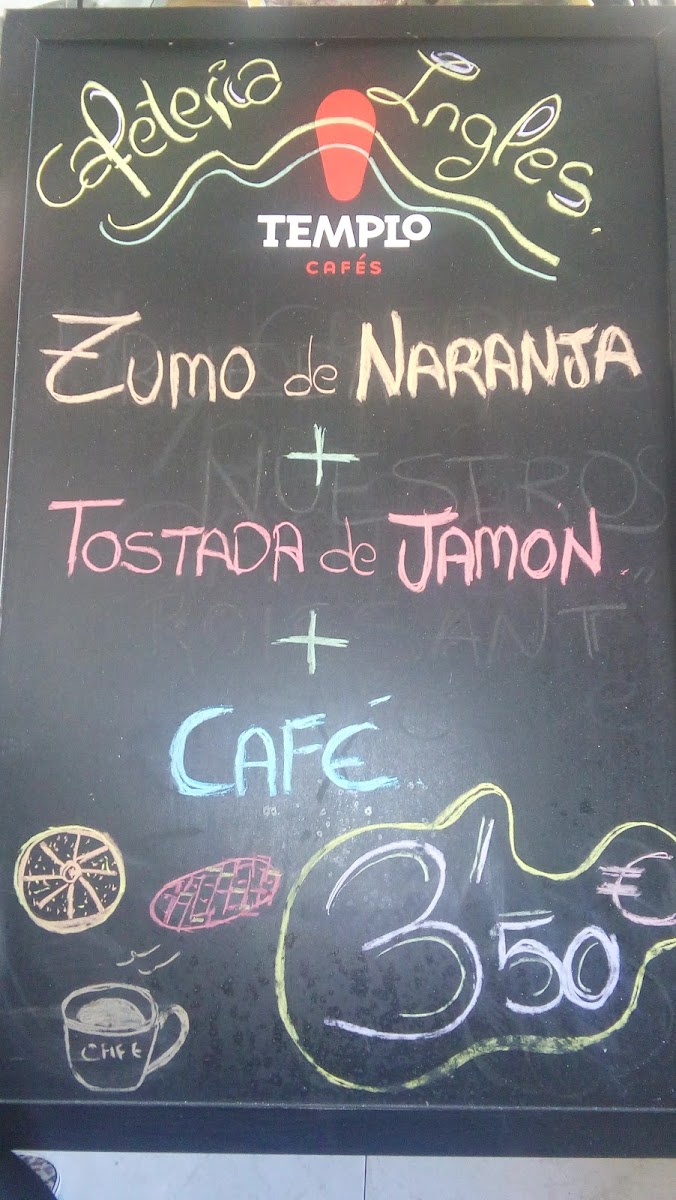 Cafeteria Ingles.
TEMPLO
CAFÉS
ZUMO de NARANJA
+
TOSTADA de JAMÓN.
+
CAFÉ
3'50 €
CAFE
NUESTROS